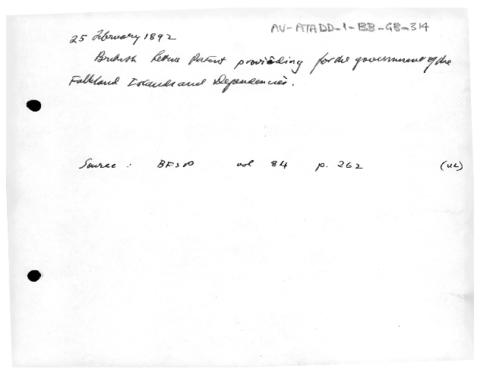 AV-ATADD-1-BB-GB-314
25 February 1892
British Letters Patent providing for the government of the
Falkland Islands and Dependencies.
Source: BFSP vol 84 p. 262 (UL)